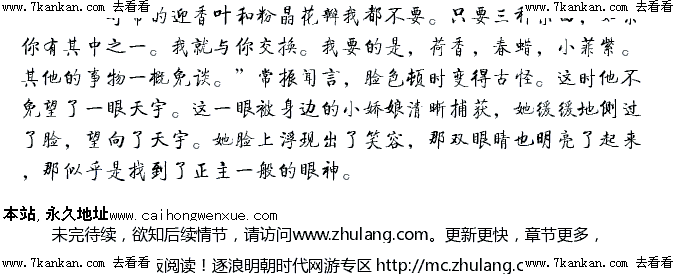 www.7kankan.com 去看看 www.7kankan.com 去看看
的迎香叶和粉晶花瓣我都不要。只要三种
你有其中之一。我就与你交换。我要的是，荷香，春蜡，小菲紫。
其他的事物一概免谈。”常振闻言，脸色顿时变得古怪。这时他不
免望了一眼天宇。这一眼被身边的小娇娘清晰捕获，她缓缓地侧过
了脸，望向了天宇。她脸上浮现出了笑容，那双眼睛也明亮了起来
，那似乎是找到了正主一般的眼神。
本站,永久地址www.caihongwenxue.com
未完待续，欲知后续情节，请访问www.zhulang.com。更新更快，章节更多，
www.7kankan.com 去看看 阅读！逐浪明朝时代网游专区 http://mc.zhulang.c www.7kankan.com 去看看